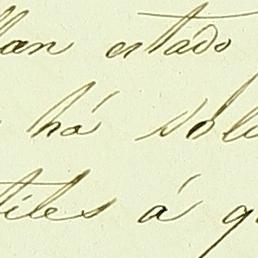 llan estado
há solu
tiles á q